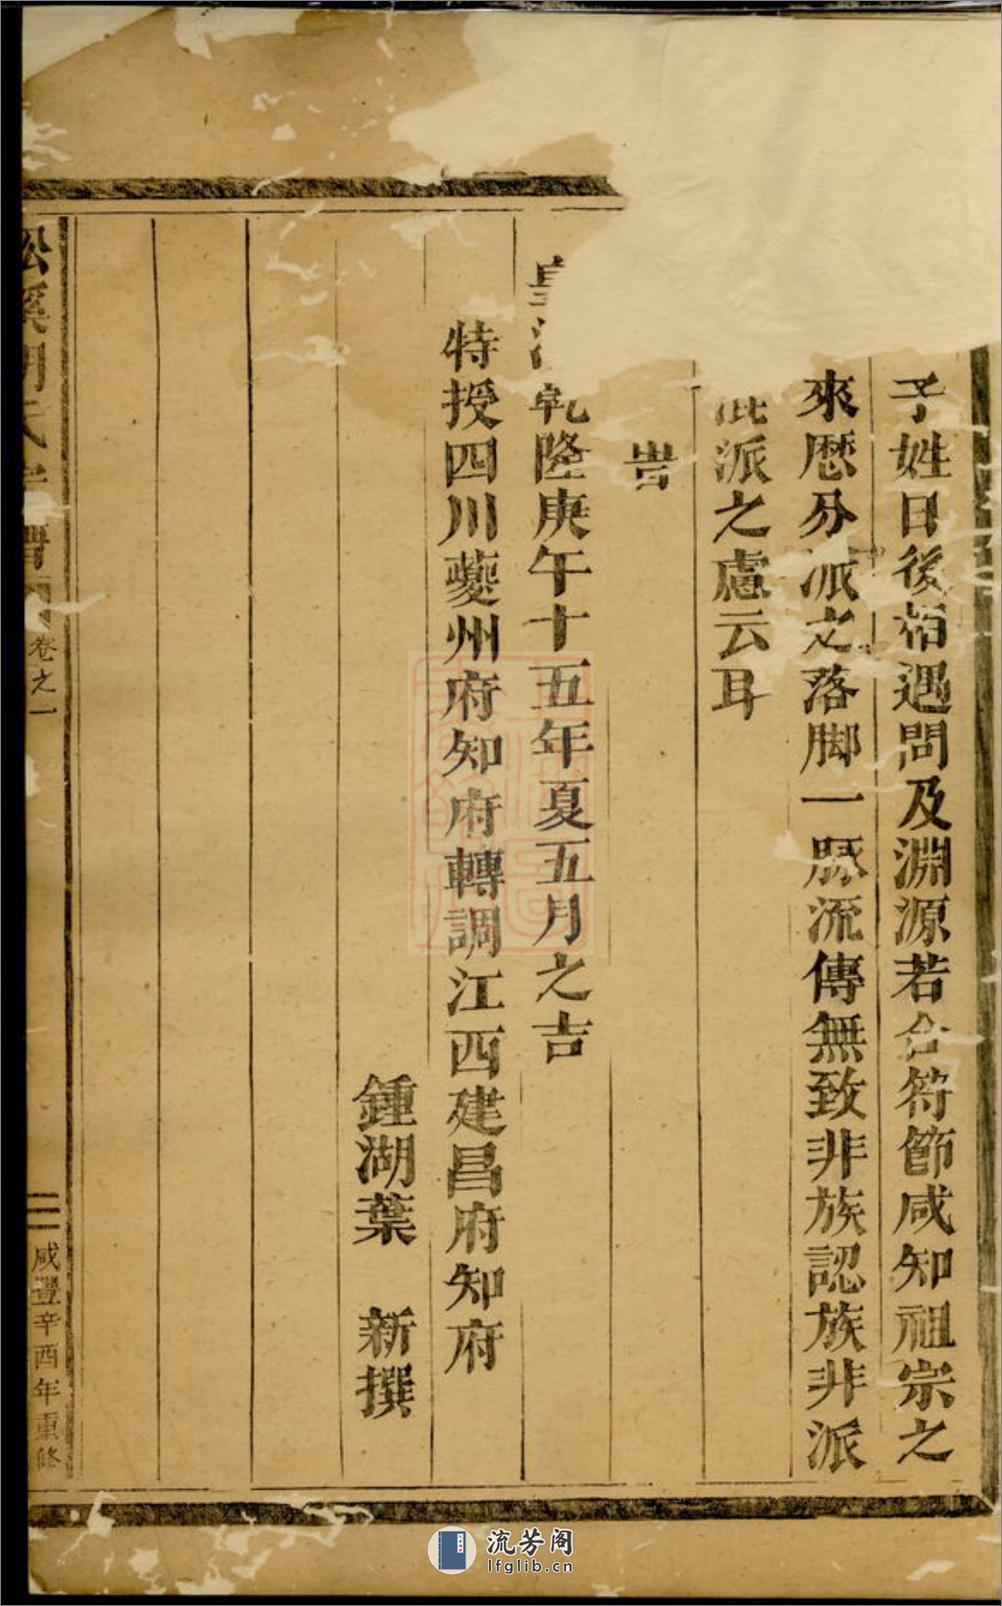 子姓日後相遇問及淵源若合符節咸知祖宗之
來歷分派之落脚一脉流傳無致非族認族非派
派之慮云耳
旹
皇清乾隆庚午十五年夏五月之吉
特授四川夔州府知府轉調江西建昌府知府
鍾湖葉 新撰
松溪胡氏宗譜 卷之一 二 咸豐辛酉年重修
流芳阁
lfglib.cn